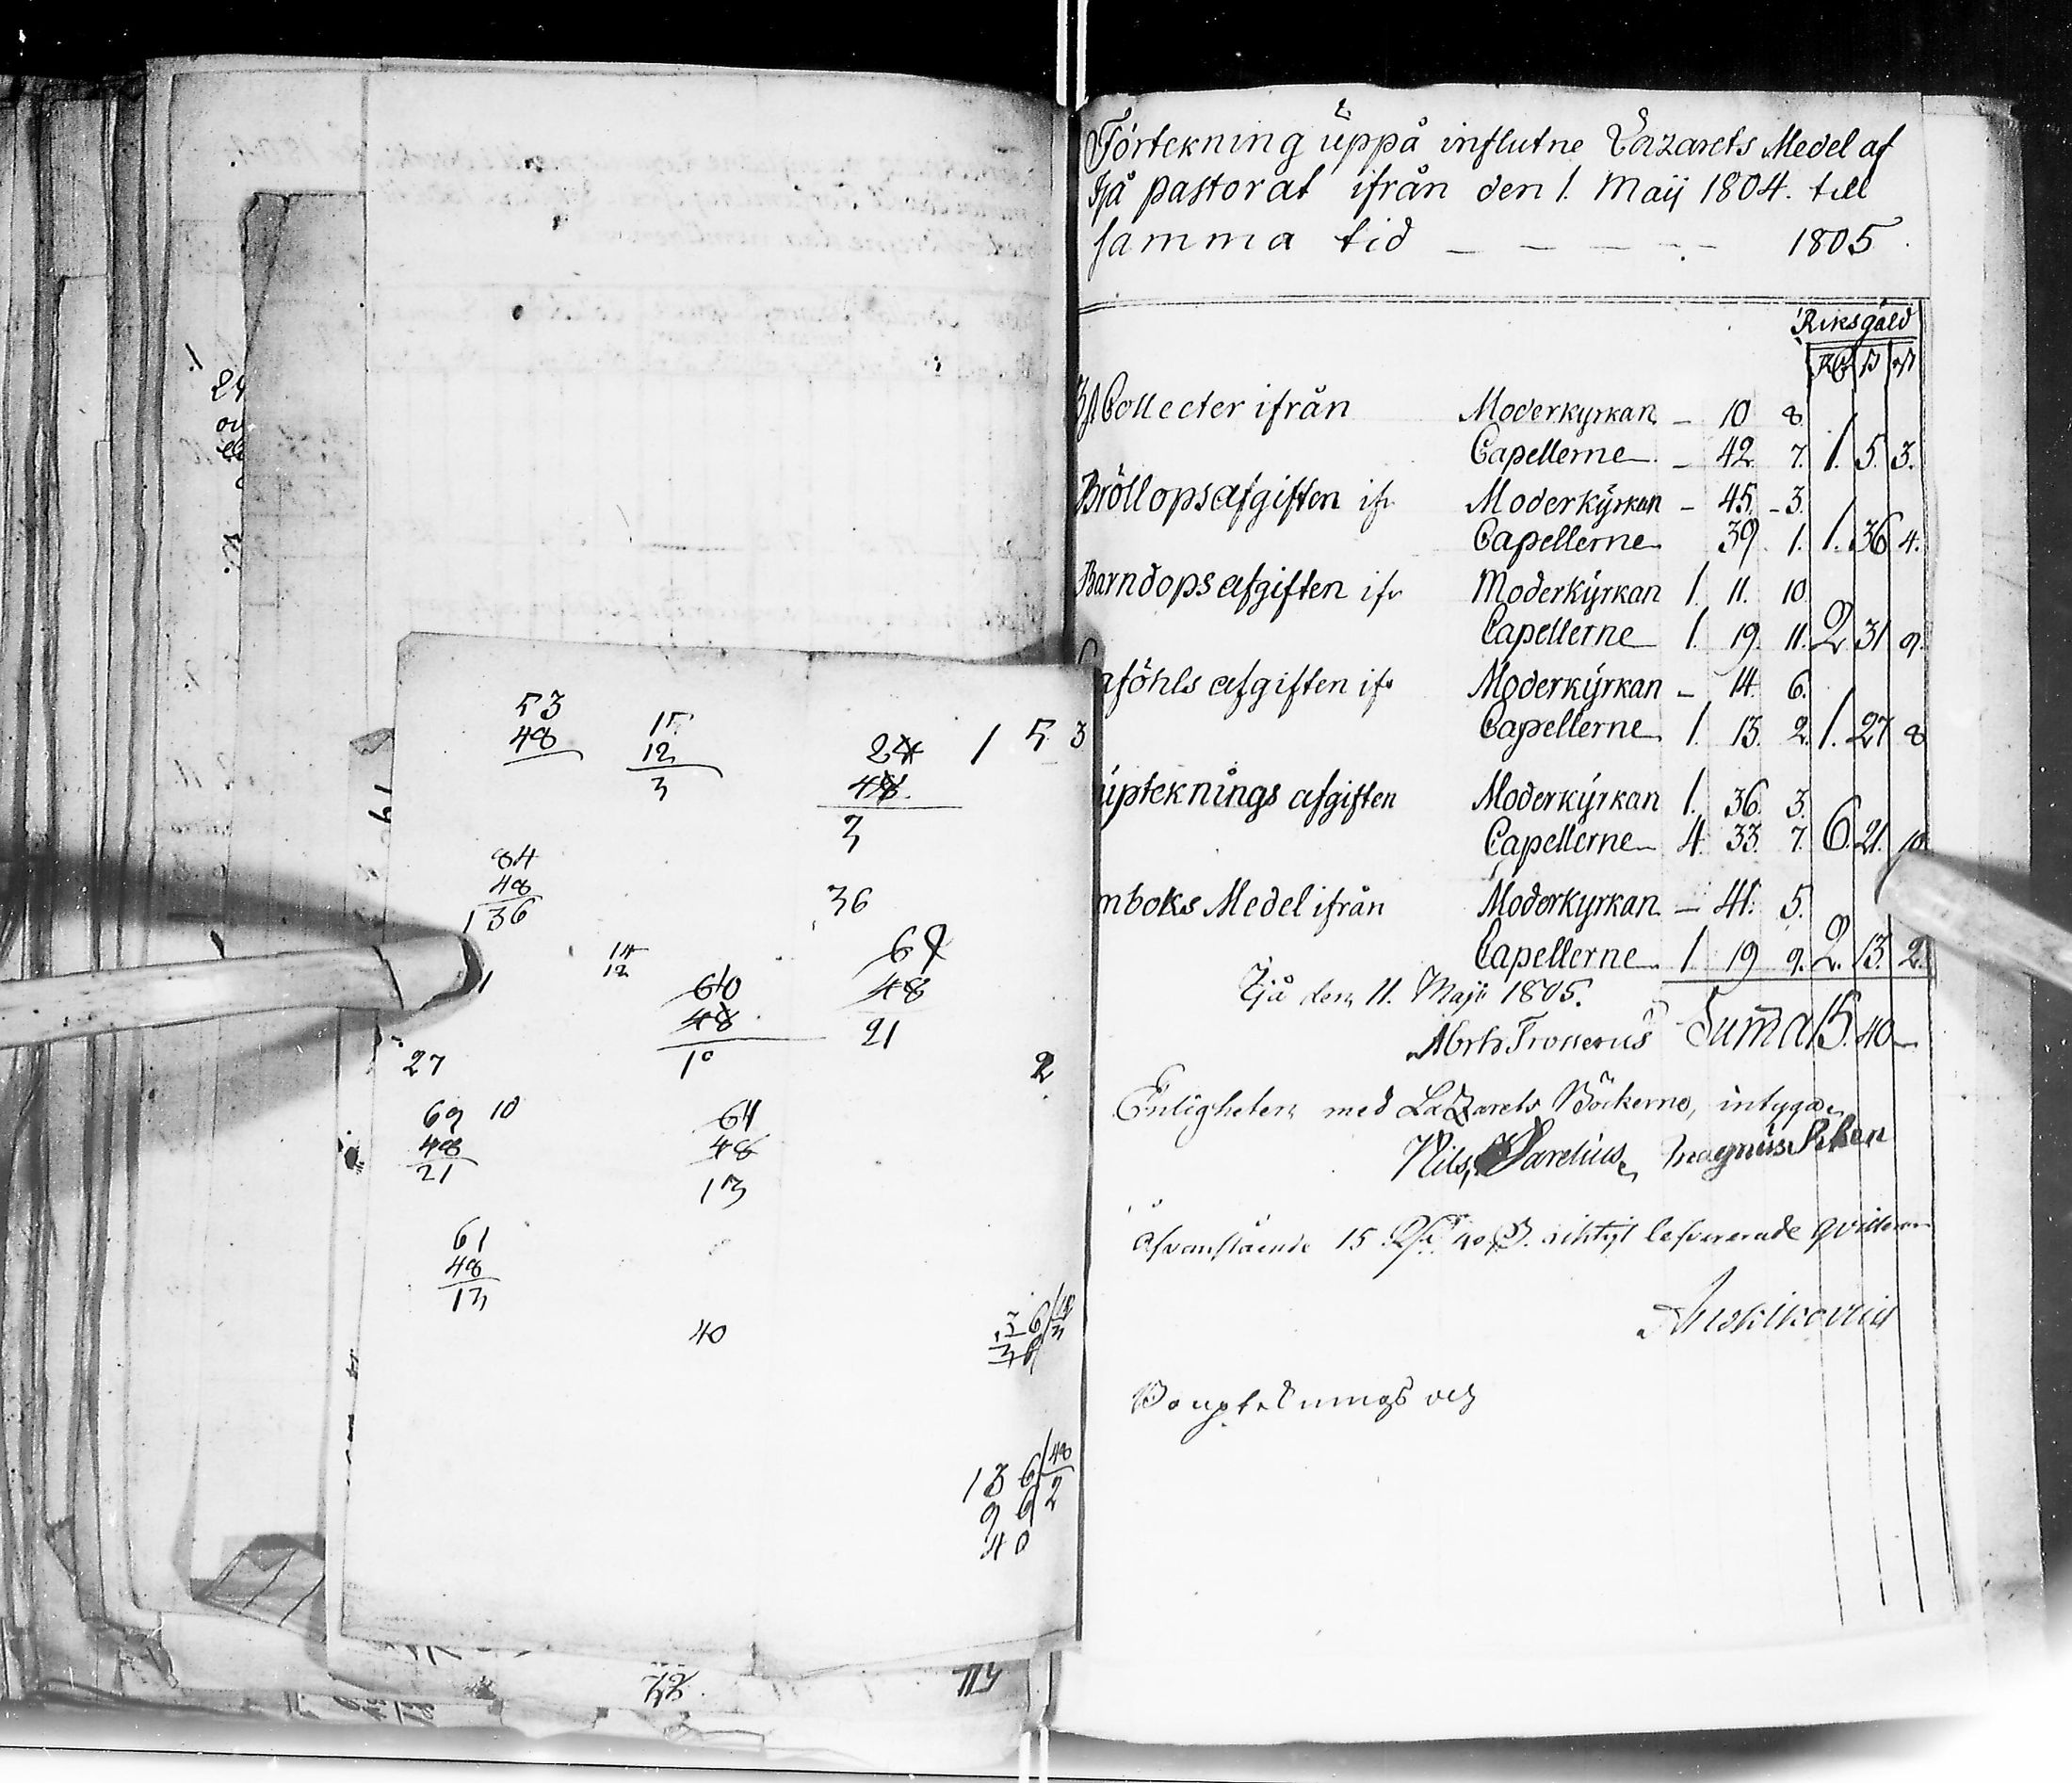 53
48
15
12
3
24
48
3
1 5 3
84
48
1 36
36
14
12
60
48
10
69
48
21
27
2
69 10
48
21
61
48
13
61
48
13
40
136 48
96 2
40
Förtekning uppå influtne Lazarets Medel af
Ijå pastorat ifrån den 1. Maij 1804. till
samma tid — — — — — 1805.
Riksgäld
Collecter ifrån Moderkyrkan — 10 8.
Capellerne — 42. 7. 1. 5. 3.
Bröllopsafgiften ifr Moderkyrkan — 45. — 3.
Capellerne 39. 1. 1. 36 4.
Barndops afgiften ifr Moderkyrkan 1. 11. 10.
Capellerne 1. 19. 11. 2 31 9.
aföhls afgiften ifr Moderkyrkan — 14. 6.
Capellerne 1. 13. 2. 1. 27 8
upteknings afgiften Moderkyrkan 1. 36. 3.
Capellerne 4. 33. 7. 6. 21. 10.
mboks Medel ifrån Moderkyrkan — 41. 5.
Capellerne 1. 19 9. 2. 13. 2.
Ijå den 11. Maji 1805.
Summa 15. 40 —
Enligheten med Lazarets Böckerne, intyga
Nils Magnus
Ofvanstående 15 40 riktigt lefvererade qvitteras